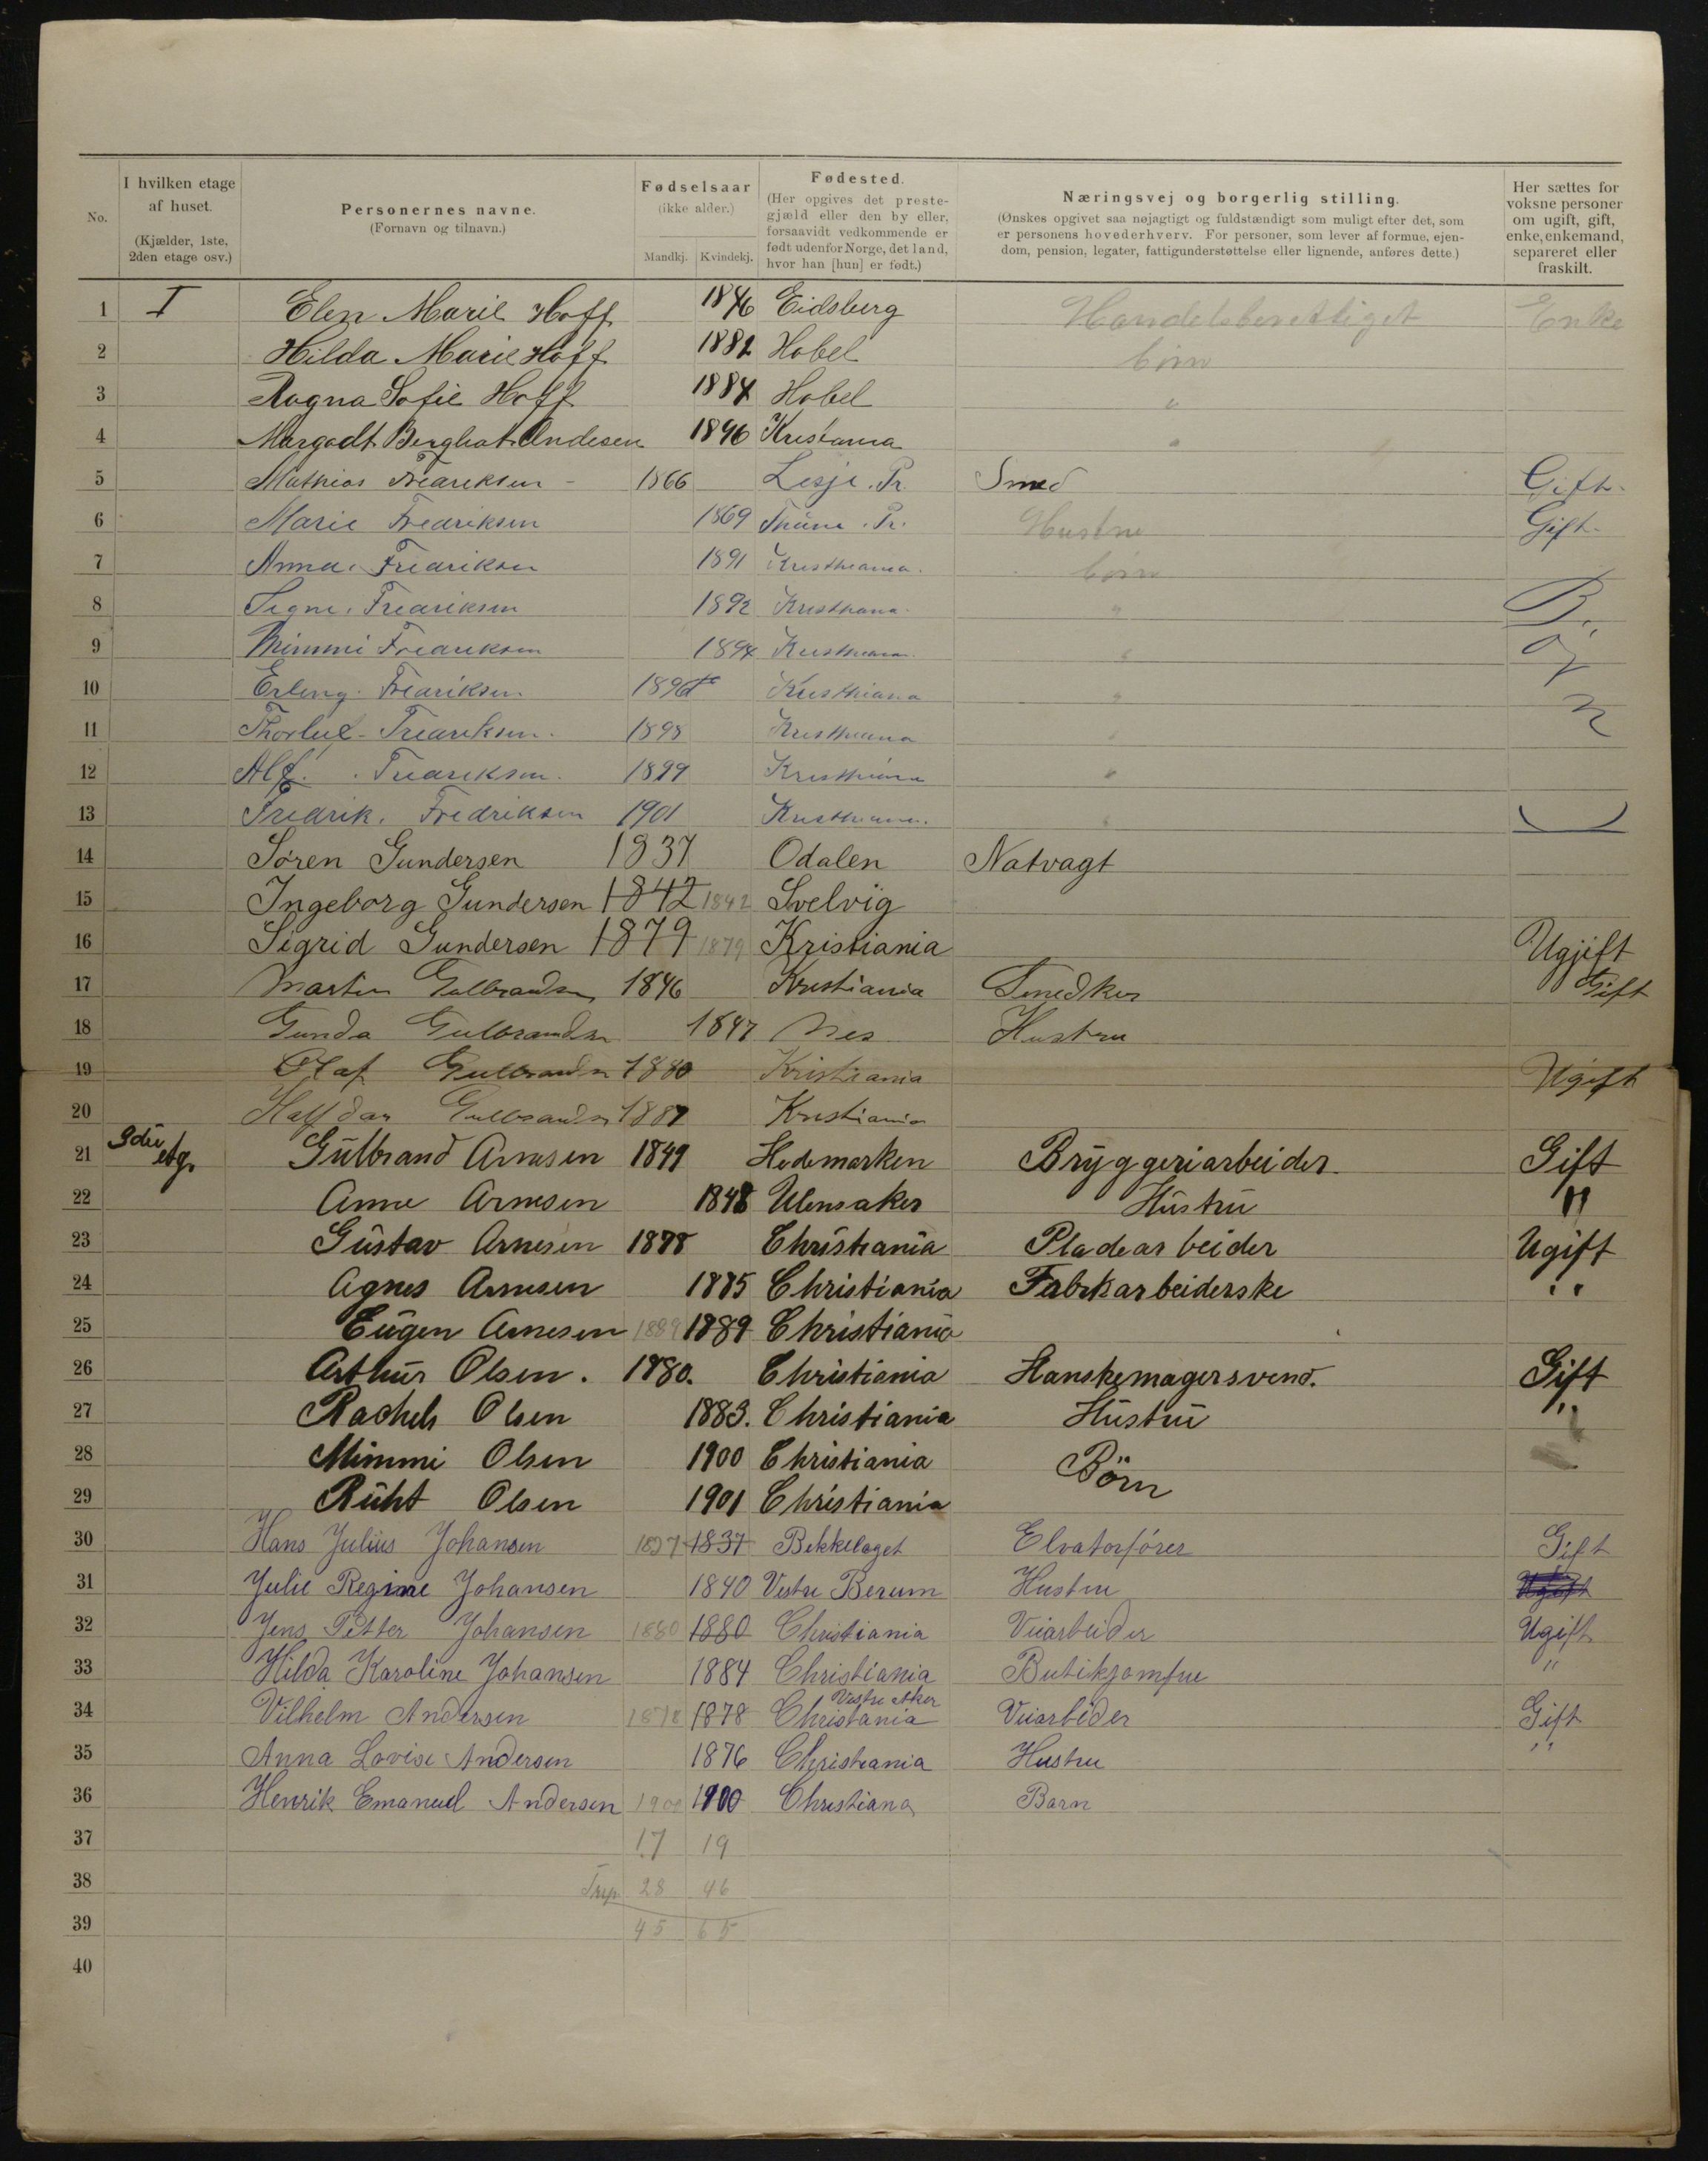 No.
I hvilken etage af huset. (Kjælder, 1ste, 2den etage osv.)
Personernes navne. (Fornavn og tilnavn.)
Fødselsaar (ikke alder.) Mandkj. Kvindekj.
Fødested. (Her opgives det prestegjæld eller den by eller, forsaavidt vedkommende er født udenfor Norge, det land, hvor han [hun] er født.)
Næringsvej og borgerlig stilling. (Ønskes opgivet saa nøjagtigt og fuldstændigt som muligt efter det, som er personens hovederhverv. For personer, som lever af formue, ejendom, pension, legater, fattigunderstøttelse eller lignende, anføres dette.)
Her sættes for voksne personer om ugift, gift, enke, enkemand, separeret eller fraskilt.
1 I Elen Marie Hoff 1846 Eidsberg Handelsberettiget Enke
2 Hilda Marie Hoff 1882 Hobel børn
3 Ragna Sofie Hoff 1884 Hobel "
4 Margodt Berghat Andesen 1896 Kristania "
5 Mathias Fredriksen 1866 Lesje. Pr. Smed Gift.
6 Marie Fredriksen 1869 Pr. Hustru Gift.
7 Anna. Fredriksen 1891 Kristhiania. børn
8 Signe. Fredriksen 1892 Kristhiana. " B
9 Mimmi Fredriksen 1894 Kristhiania " ø
10 Erling. Fredriksen 1896 Kristhiana " r
11 Thorleif Fredriksen. 1898 Kristhiana " n
12 Alf. Fredriksen. 1899 Kristhiana "
13 Fredrik. Fredriksen 1901 Kristhiana. "
14 Søren Gundersen 1837 Odalen Natvagt
15 Ingeborg Gundersen 1842 1842 Svelvig
16 Sigrid Gundersen 1879 1879 Kristiania Ugjift
17 Martin Gulbrandsn 1846 Kristiania Snedker Gift
18 Gunda Gulbrandsn 1847 Nes Hustru
19 Olaf Gulbrandsn 1880 Kristiania Ugift
20 Halfdan Gulbrandsn 1887 Kristiania
21 3die etg. Gülbrand Arnesen 1849 Hedemarken Brÿggeriarbeider Gift
22 Anne Arnesen 1848 Ulensaker Hüstrü "
23 Güstav Arnesen 1878 Christiania Pladearbeider Ugift
24 Agnes Arnesen 1885 Christiania Fabrkarbeiderske "
25 Eügen Arnesen 1889 1889 Christiania
26 Arthür Olsen. 1880. Christiania Hanskemagersvend. Gift
27 Rachels Olsen 1883. Christiania Hüstrü "
28 Mimmi Olsen 1900 Christiania Börn
29 Rüht Olsen 1901 Christiania
30 Hans Julius Johansen 1837 1837 Bekkelaget Elvatorfører Gift
31 Julie Regine Johansen 1840 Vestre Berum Hustru Ugift
32 Jens Petter Johansen 1880 1880 Christiania Veiarbeider Ugift
33 Hilda Karoline Johansen 1884 Christiania Butikjomfru "
34 Vilhelm Andersen 1878 1878 Vestre Aker Christania Veiarbeider Gift
35 Anna Lovise Andersen 1876 Christiania Hustru "
36 Henrik Emanuel Andersen 1900 1900 Christiana Barn
37 17 19
38 28 46
39 45 65
40